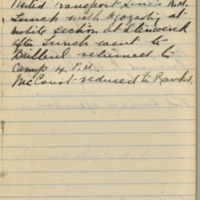 Visited transport lines A.M.
Lunch with at
mobile section at Steenwerck
after Lunch went to
Bailleul returned to
Camp 4 P.M.
McCourt reduced to Ranks.